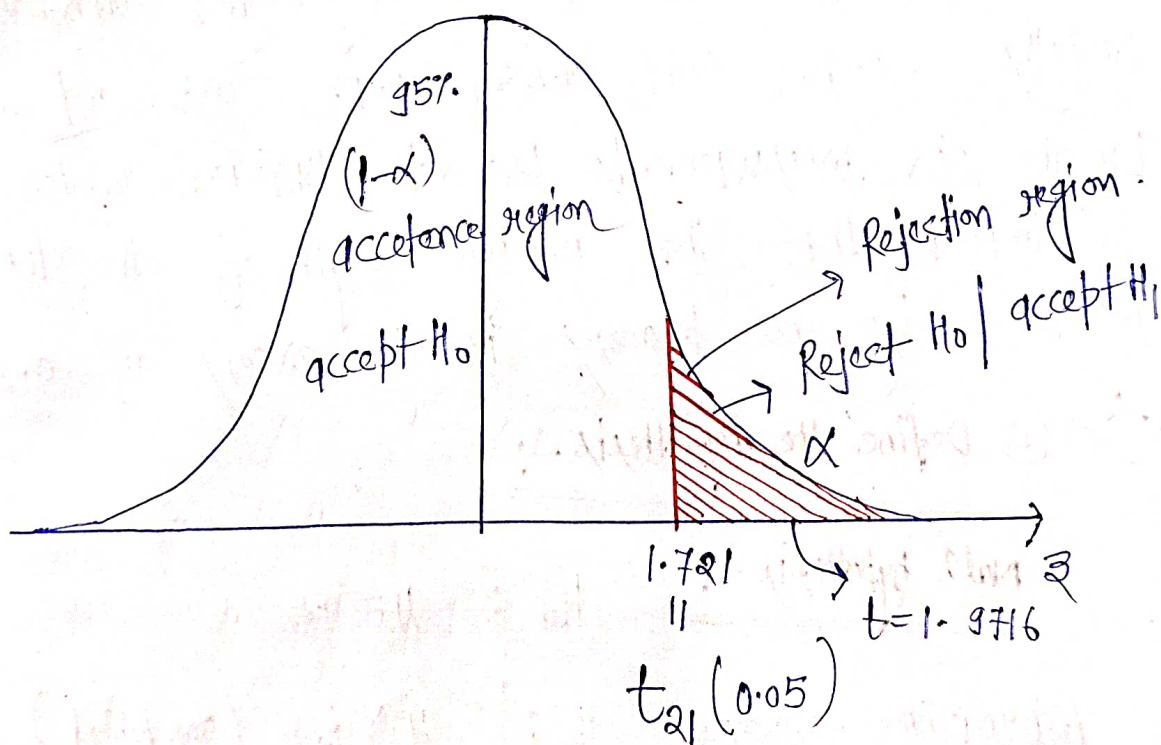 95%.
(1-α)
accetance region
accept H₀
Rejection region.
Reject H₀ | accept H₁
α
1.721
||
t₂₁ (0.05)
t=1.9716
3